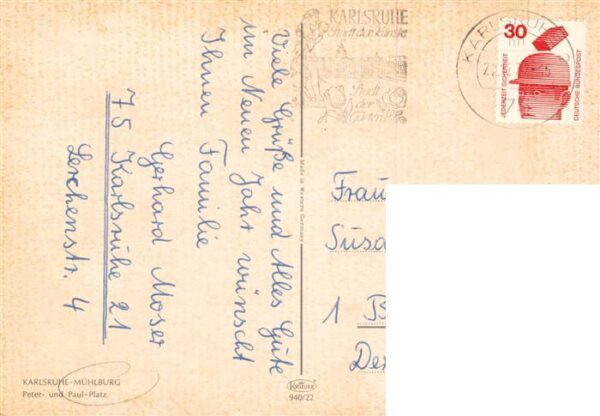 Viele Grüße und Alles Gute
im Neuen Jahr wünscht
Ihnen Familie
Gerhard Moser
75 Karlsruhe 21
Lerchenstr. 4
KARLSRUHE-MÜHLBURG
Peter- und Paul-Platz
Made in Western Germany
Krüger
940/22
KARLSRUHE
Stadt der Künste
Stadt
der
KARLSRUHE
30
JEDERZEIT SICHERHEIT
DEUTSCHE BUNDESPOST
Frau
1